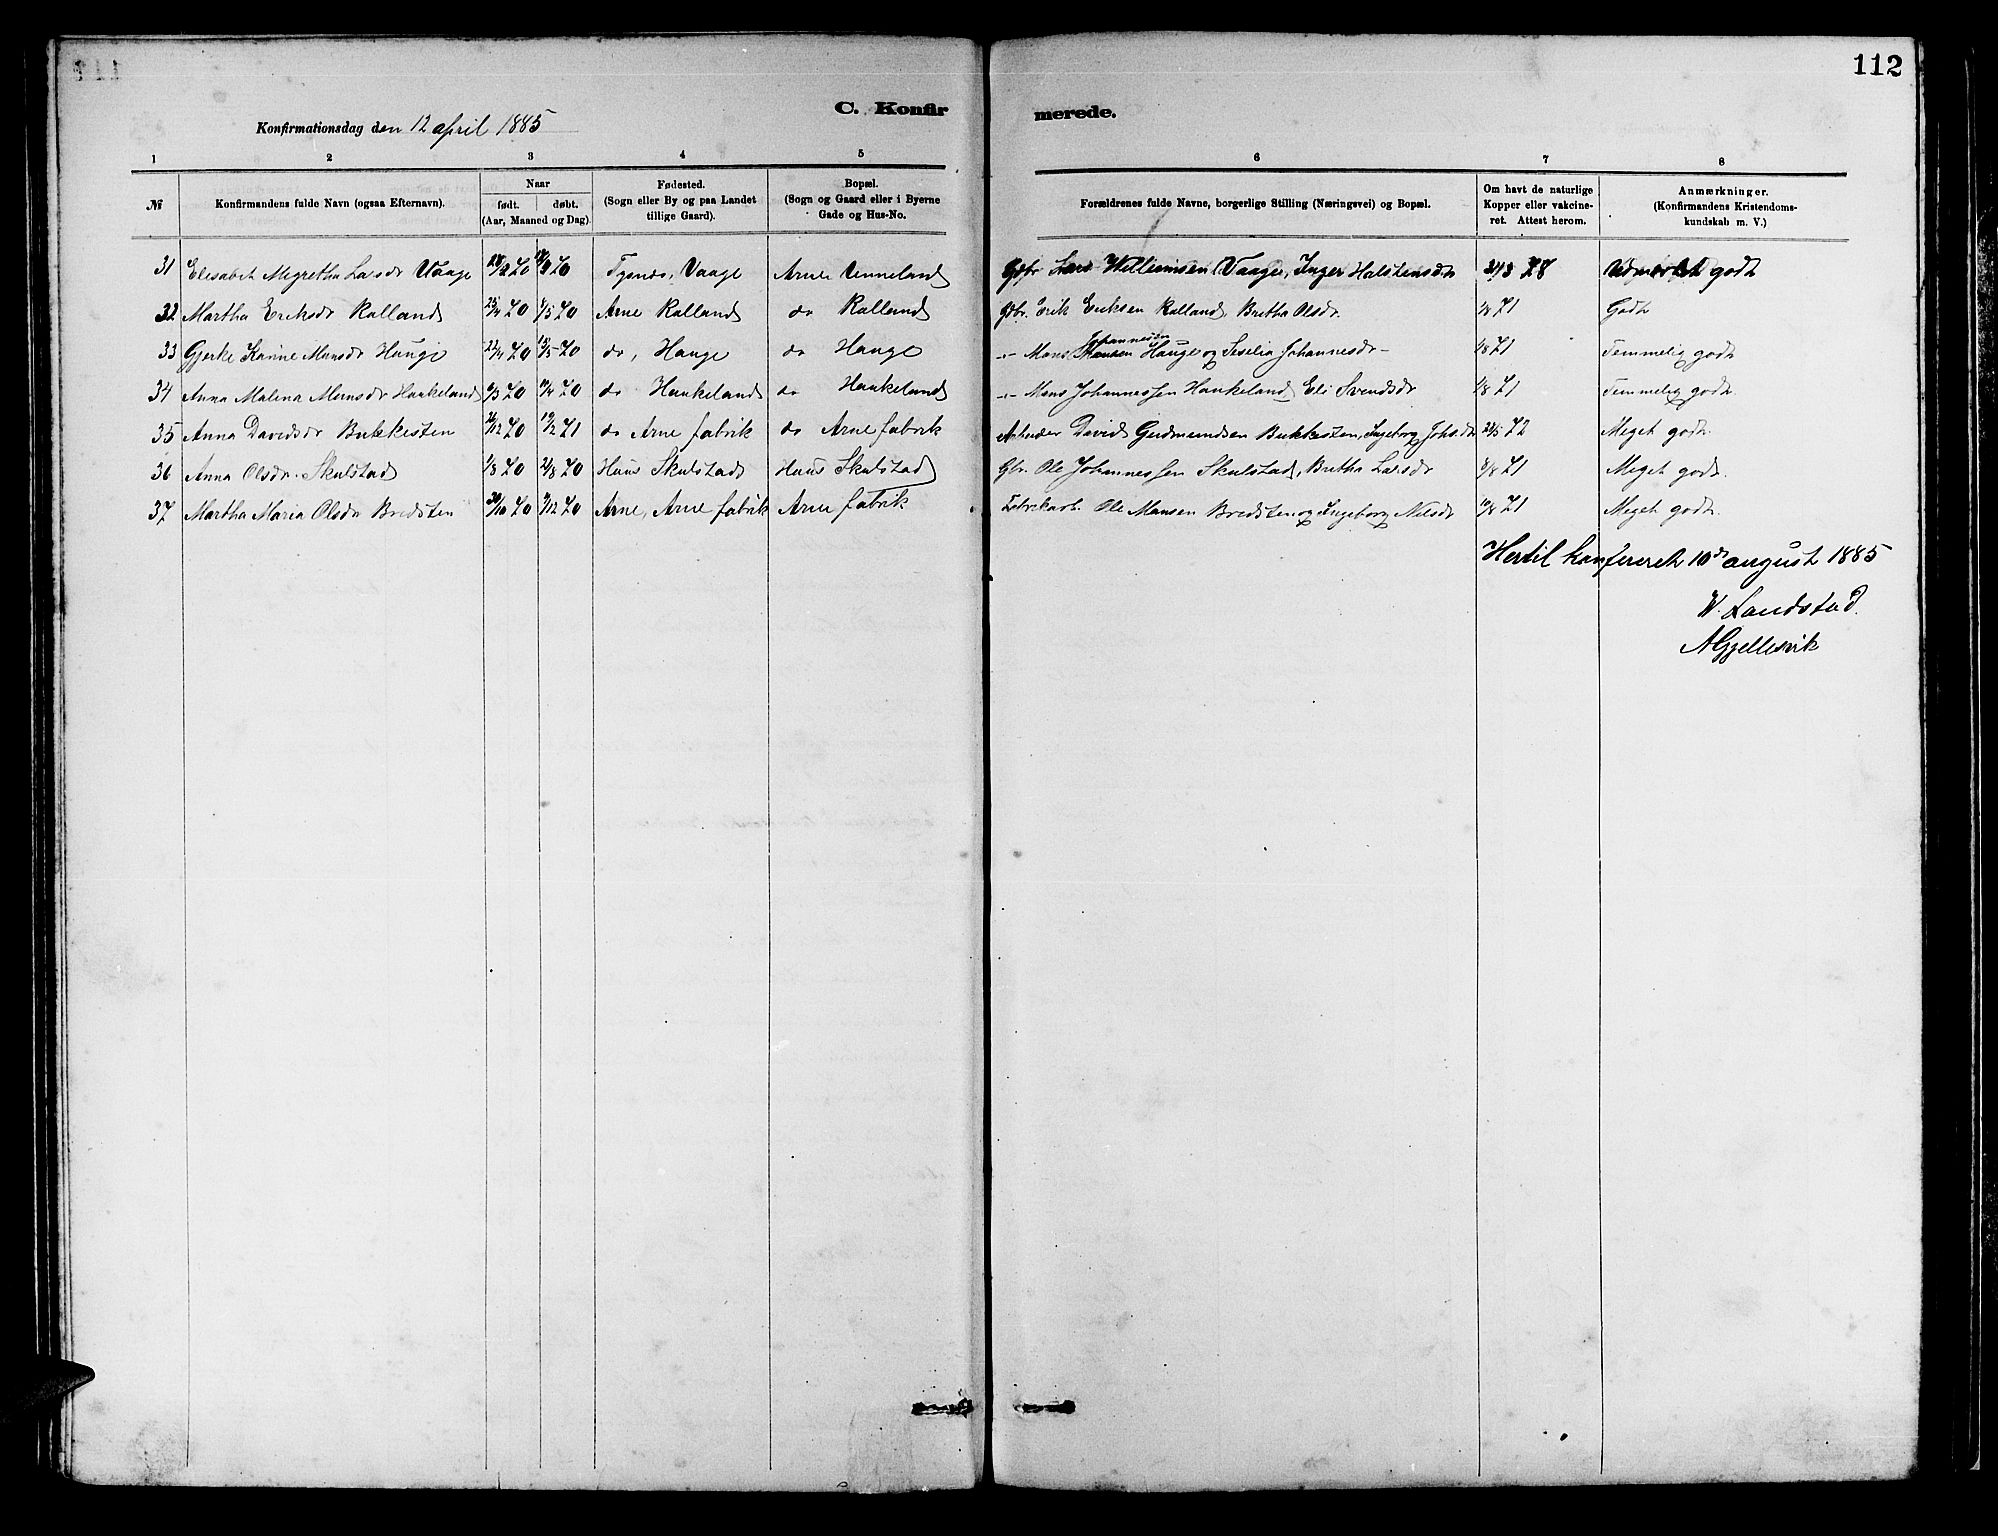 112
C. Konfirmerede.
Konfirmationsdag den 12 april 1885
1 2 3 4 5 6 7 8
№ Konfirmandens fulde Navn (ogsaa Efternavn). Naar født. døbt. (Aar, Maaned og Dag). Fødested. (Sogn eller By og paa Landet tillige Gaard). Bopæl. (Sogn og Gaard eller i Byerne Gade og Hus-No. Forældrenes fulde Navne, borgerlige Stilling (Næringsvei) og Bopæl. Om havt de naturlige Kopper eller vakcineret. Attest herom. Anmærkninger. (Konfirmandens Kristendomskundskab m. V.)
31 Elisabet Megretha Larsdr Vaage 70 70 Tysnes, Vaage Arne Unneland Gbr Lars Williamsen Vaage, Inger Halstensdr 78 Udmerket godt
32 Martha Eriksdr Kalland 25/4 70 1/5 70 Arne Kalland do Kalland Gbr. Erik Eriksen Kalland, Britha Olsdr. 1/8 71 Godt
33 Gjerke Karine Mansdr Hauge 22/4 70 15/5 70 do, Hauge do Hauge -"- Mans Johannesen Hauge og Seselia Johannesdr 1/8 71 Temmelig godt
34 Anna Malena Mansdr Haukeland 6/3 70 70 do Haukeland do Haukeland -"- Mons Johannessen Haukeland, Eli Svendsdr 1/8 71 Temmelig godt.
35 Anna Davidsdr Bukkesten 70 19/2 71 do Arne fabrik do Arne fabrik Arbeider David Gudmundsen Bukkesten, Ingeborg Johs.dr 24/5 72 Meget godt
36 Anna Olsdr. Skulstad 1/8 70 21/8 70 Haus Skulstad Haus Skulstad Gbr. Ole Johannessen Skulstad, Britha Larsdr 71 Meget godt.
37 Martha Maria Olsdr Bredsten 30/10 70 11/12 70 Arne, Arne fabrik Arne fabrik Fabrikarb. Ole Mansen Bredsten og Ingeborg Nilsdr 10/8 71 Meget godt.
Hertil konfereret 10de august 1885
W. Landstad.
A Gjellesvik